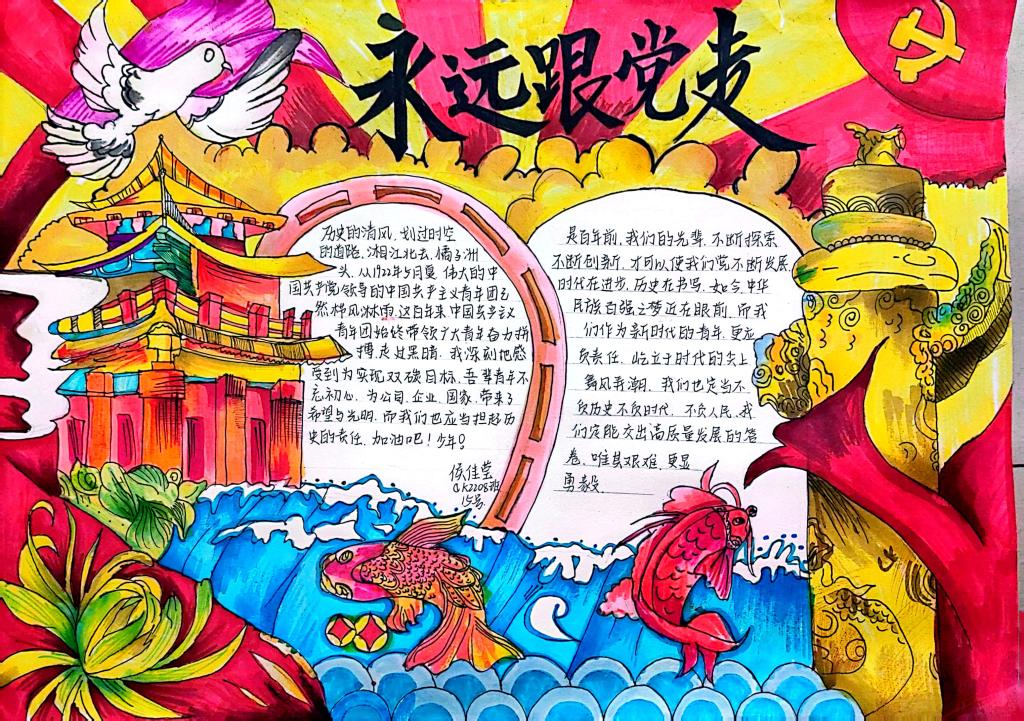 永远跟党走
历史的清风,划过时空
的道路,湘江北去,橘子洲
头,从1922年5月夏 伟大的中
国共产党领导的中国共产主义青年团已
然栉风沐雨,这百年来,中国共产主义
青年团始终带领广大青年奋力拼
搏,走过黑暗,我深刻地感
受到为实现双碳目标,吾辈青年不
忘初心,为公司、企业、国家,带来了
希望与光明,而我们也应当担起历
史的责任,加油吧!少年!
侯佳莹
GK2208班
15号
是百年前,我们的先辈,不断探索
不断创新,才可以使我们党不断发展
时代在进步,历史在书写,如今,中华
民族百强之梦近在眼前,而我
们作为新时代的青年,更应
负责任,屹立于时代的尖上
舞风弄潮,我们也定当不
负历史不负时代,不负人民,我
们定能交出高质量发展的答
卷,唯其艰难,更显
勇毅。